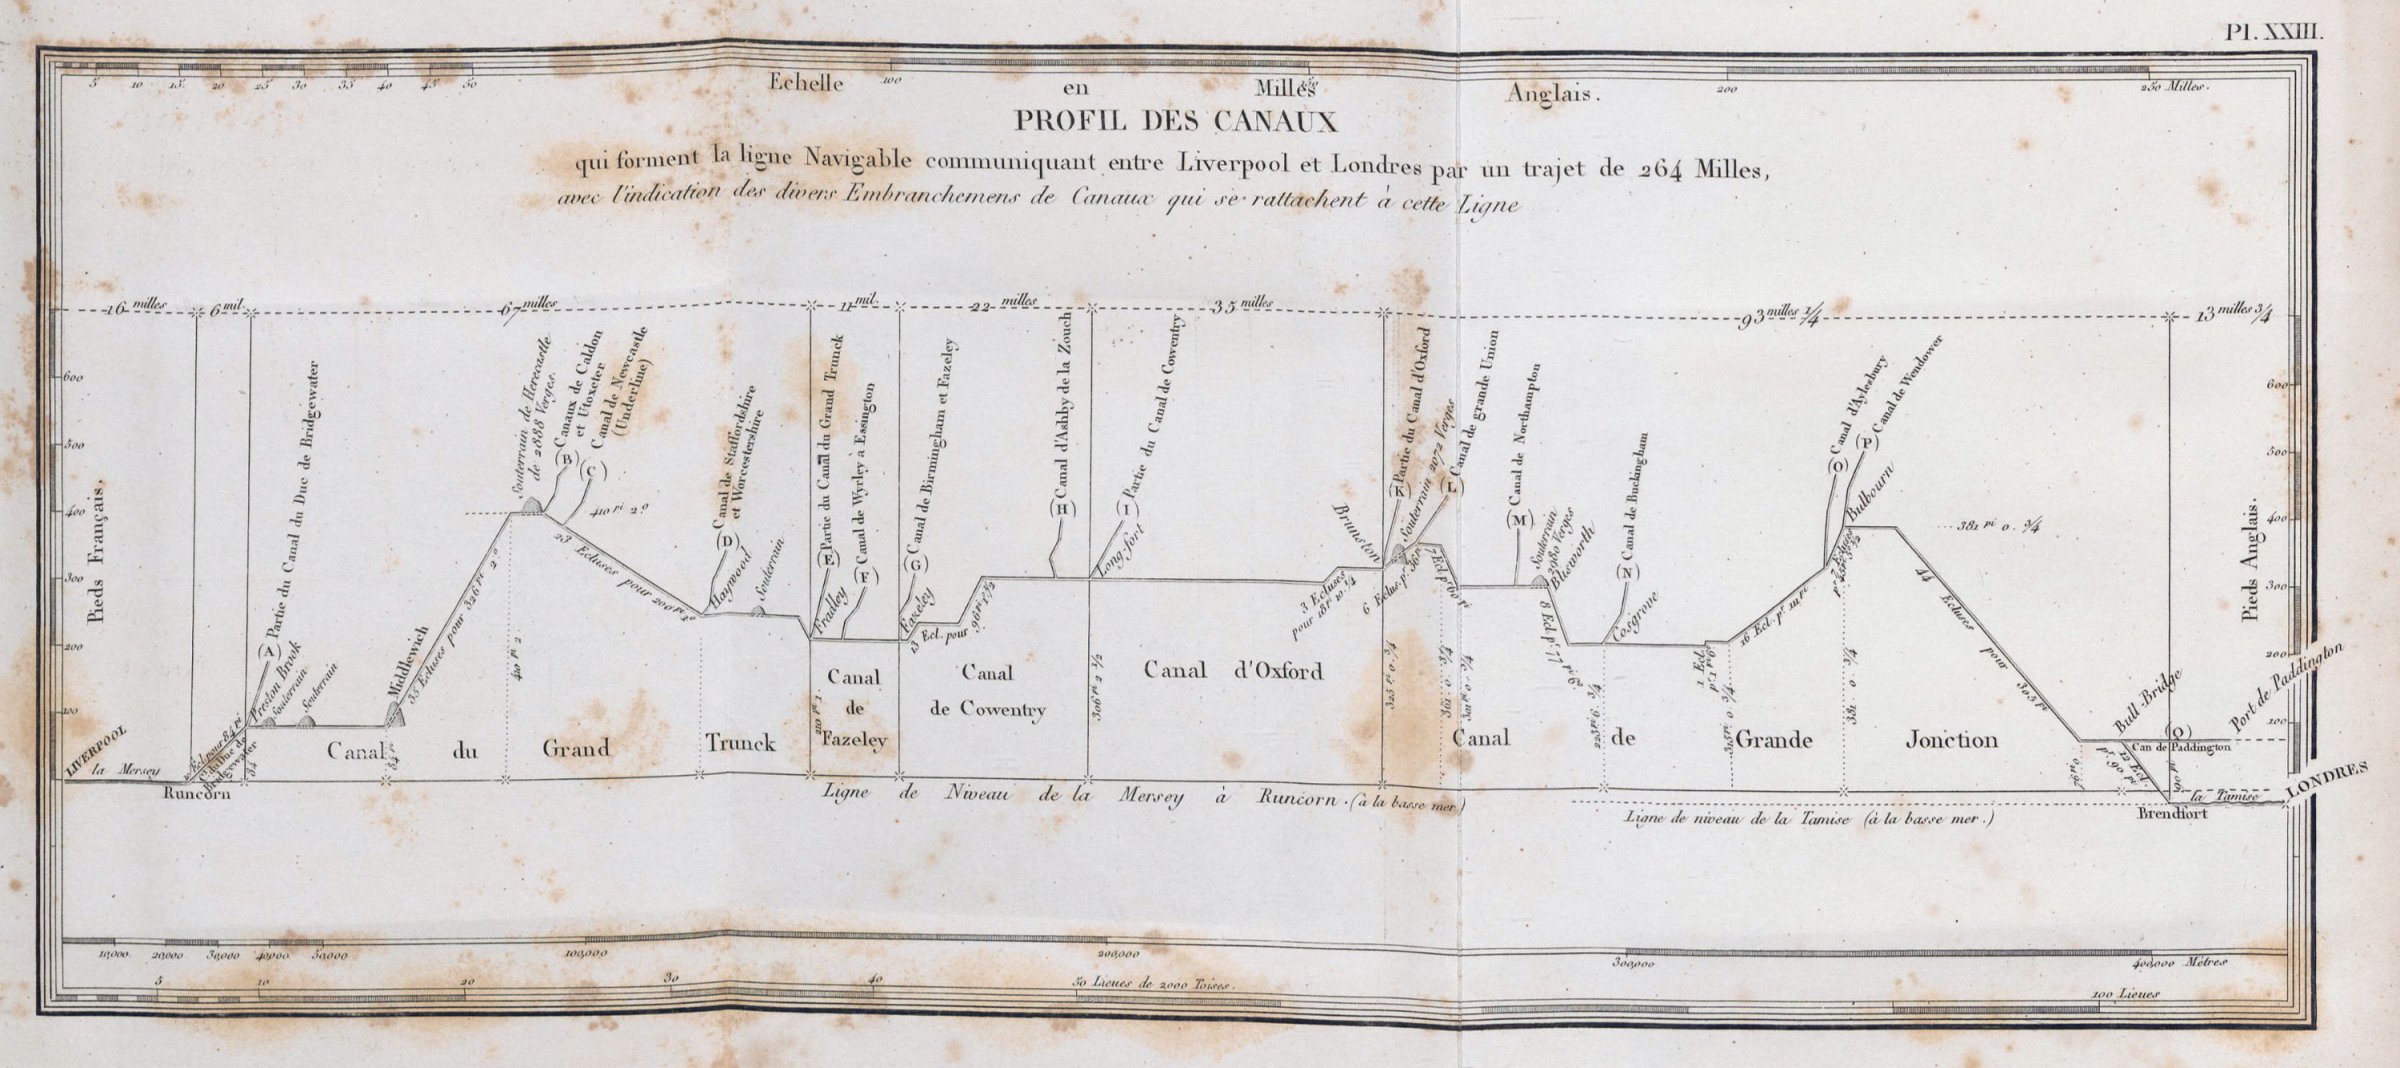 Pl. XXIII.
5 10 15 20 25 30 35 40 45 50 100 150 200 250 Milles.
Echelle en Milles Anglais.
PROFIL DES CANAUX
qui forment la ligne Navigable communiquant entre Liverpool et Londres par un trajet de 264 Milles,
avec l'indication des divers Embranchemens de Canaux qui se rattachent à cette Ligne
16 milles 6 mil. 67 milles 11 mil. 22 milles 35 milles 93 milles 1/4 13 milles 3/4
Pieds Français.
600
500
400
300
200
100
Pieds Anglais.
600
500
400
300
200
100
LIVERPOOL
la Mersey
Runcorn
Ecl. pour 84 pi
Cal. du Duc de
Bridgewater
84
(A) Partie du Canal du Duc de Bridgewater
Preston Brook
Souterrain
Souterrain
Middlewich
84
35 Ecluses pour 326 pi 2°
Souterrain de Herecastle
de 2888 Verges.
(B) Canaux de Caldon
et Utoxeter
(C) Canal de Newcastle
(Underline)
410 pi 2°
23 Ecluses pour 200 pi 1°
(D) Canal de Staffordshire
et Worcestershire
Haywood
Souterrain
(E) Partie du Canal du Grand Trunck
(F) Canal de Wyrley à Essington
Fradley
210 pi 1.
(G) Canal de Birmingham et Fazeley
Fazeley
13 Ecl. pour 96 pi 1 1/2
(H) Canal d'Ashby de la Zouch
(I) Partie du Canal de Cowentry
Long-fort
306 pi 2 1/2
3 Ecluses
pour 18 pi 10 1/4
Brunston
(K) Partie du Canal d'Oxford
Souterrain 2072 Verges
(L) Canal de grande Union
6 Eclus. pr 36 pi
7 Ecl pr 60 pi
325 pi 0. 3/4
361. 0. 3/4
301 pi 0. 3/4
(M) Canal de Northampton
Souterrain
3080 Verges
Blisworth
(N) Canal de Buckingham
Cosgrove
1 Ecl.
16 Ecl. pr 111 pi
(O) Canal d'Aylesbury
(P) Canal de Wendower
Bulbourn
381 pi 0. 3/4
381. 0. 3/4
44 Ecluses pour 305 pi
Bull-Bridge
(Q)
Can de Paddington
Port de Paddington
12 Ecl
pr. 90 pi
90 pi
76 pi 0
la Tamise
LONDRES
Brendfort
Canal du Grand Trunck
Canal
de
Fazeley
Canal
de Cowentry
Canal d'Oxford
Canal de Grande Jonction
Ligne de Niveau de la Mersey à Runcorn. (à la basse mer)
Ligne de niveau de la Tamise (à la basse mer.)
10,000 20,000 30,000 40,000 50,000 100,000 200,000 300,000 400,000 Mètres
5 10 20 30 40 50 Lieues de 2,000 Toises. 100 Lieues